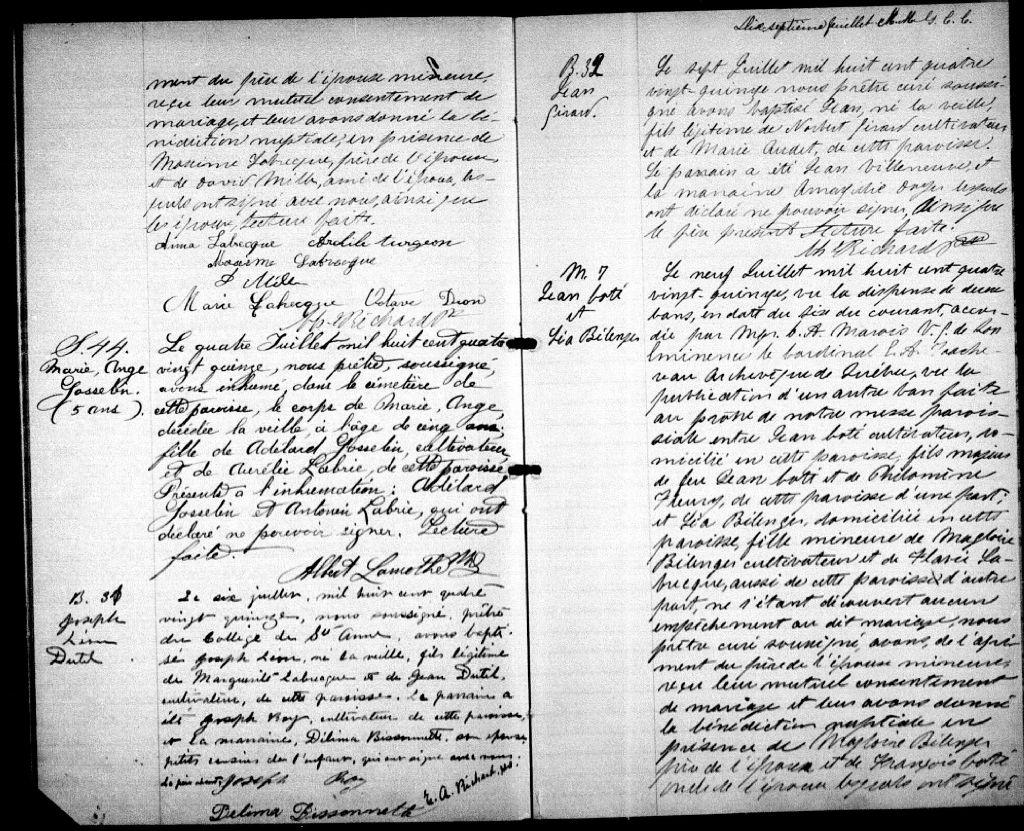 ment du père de l'épouse mineure,
reçu leur mutuel consentement de
mariage, et leur avons donné la bé-
nédiction nuptiale, en présence de
Maxime Labrecque, père de l'épouse
et de David Mille, ami de l'époux, les-
quels ont signé avec nous, ainsi que
les époux, Lecture faite.
Anna Labrecque Archile turgeon
Maxime Labrecque
D Mille
Marie Labrecque Octave Dion
Richard ptr
S. 44.
Marie, Ange
Gosselin.
(5 ans).
Le quatre Juillet mil huit cent quatre
vingt quinze, nous prêtre, soussigné,
avons inhumé, dans le cimetière de
cette paroisse, le corps de Marie, Ange,
décédée la veille à l'âge de cinq ans.
fille de Adélard Gosselin, cultivateur
et de Aurélie Labrie, de cette paroisse.
Présents à l'inhumation: Adélard
Gosselin et Antonin Labrie, qui ont
déclaré ne pouvoir signer. Lecture
faite.
Albert Lamothe Ptre
B. 31
Joseph
Léon
Dutil
Le six juillet, mil huit cent quatre
vingt quinze, nous soussigné, prêtre
du Collège de Ste Anne, avons bapti-
sé Joseph Léon, né la veille, fils légitime
de Marguerite Labrecque et de Jean Dutil,
cultivateur, de cette paroisse. Le parrain a
été Joseph Roy, cultivateur de cette paroisse,
et la marraine, Délima Bissonnette, son épouse,
petits cousins de l'enfant, qui ont signé avec nous.
Le père absent. Joseph Roy
Délima Bissonnette E. A. Richard, ptr.
Dix-septième feuillet
B. 32
Jean
Girard.
Le sept Juillet mil huit cent quatre
vingt-quinze nous prêtre curé soussi-
gné avons baptisé Jean, né la veille,
fils légitime de Norbert Girard cultivateur
et de Marie Audet, de cette paroisse.
Le parrain a été Jean Villeneuve, et
la marraine lesquels
ont déclaré ne pouvoir signer, Ainsi que
le père présent Lecture faite.
Richard ptr
M. 7
Jean Coté
et
Léa Bélenger
Le neuf Juillet mil huit cent quatre
vingt-quinze, vu la dispense de deux
bans, en date du six du courant, accor-
dée par Mgr. C. A. Marois V. G. de Son
Eminence le Cardinal E. A. Tasche-
reau Archevêque de Québec, vu la
publication d'un autre ban faite
au prône de notre messe parois-
siale entre Jean Coté cultivateur, do-
micilié en cette paroisse, fils majeur
de feu Jean Coté et de Philomène
Fleury, de cette paroisse d'une part;
et Léa Bélenger, domiciliée en cette
paroisse, fille mineure de Magloire
Bélenger cultivateur et de Flavie La-
brecque, aussi de cette paroisse d'autre
part, ne s'étant découvert aucun
empêchement au dit mariage; nous
prêtre curé soussigné, avons, de l'agré-
ment du père de l'épouse mineure,
reçu leur mutuel consentement
de mariage et leur avons donné
la bénédiction nuptiale en
présence de Magloire Bélenger
père de l'épouse et de François Coté
oncle de l'époux lesquels ont signé